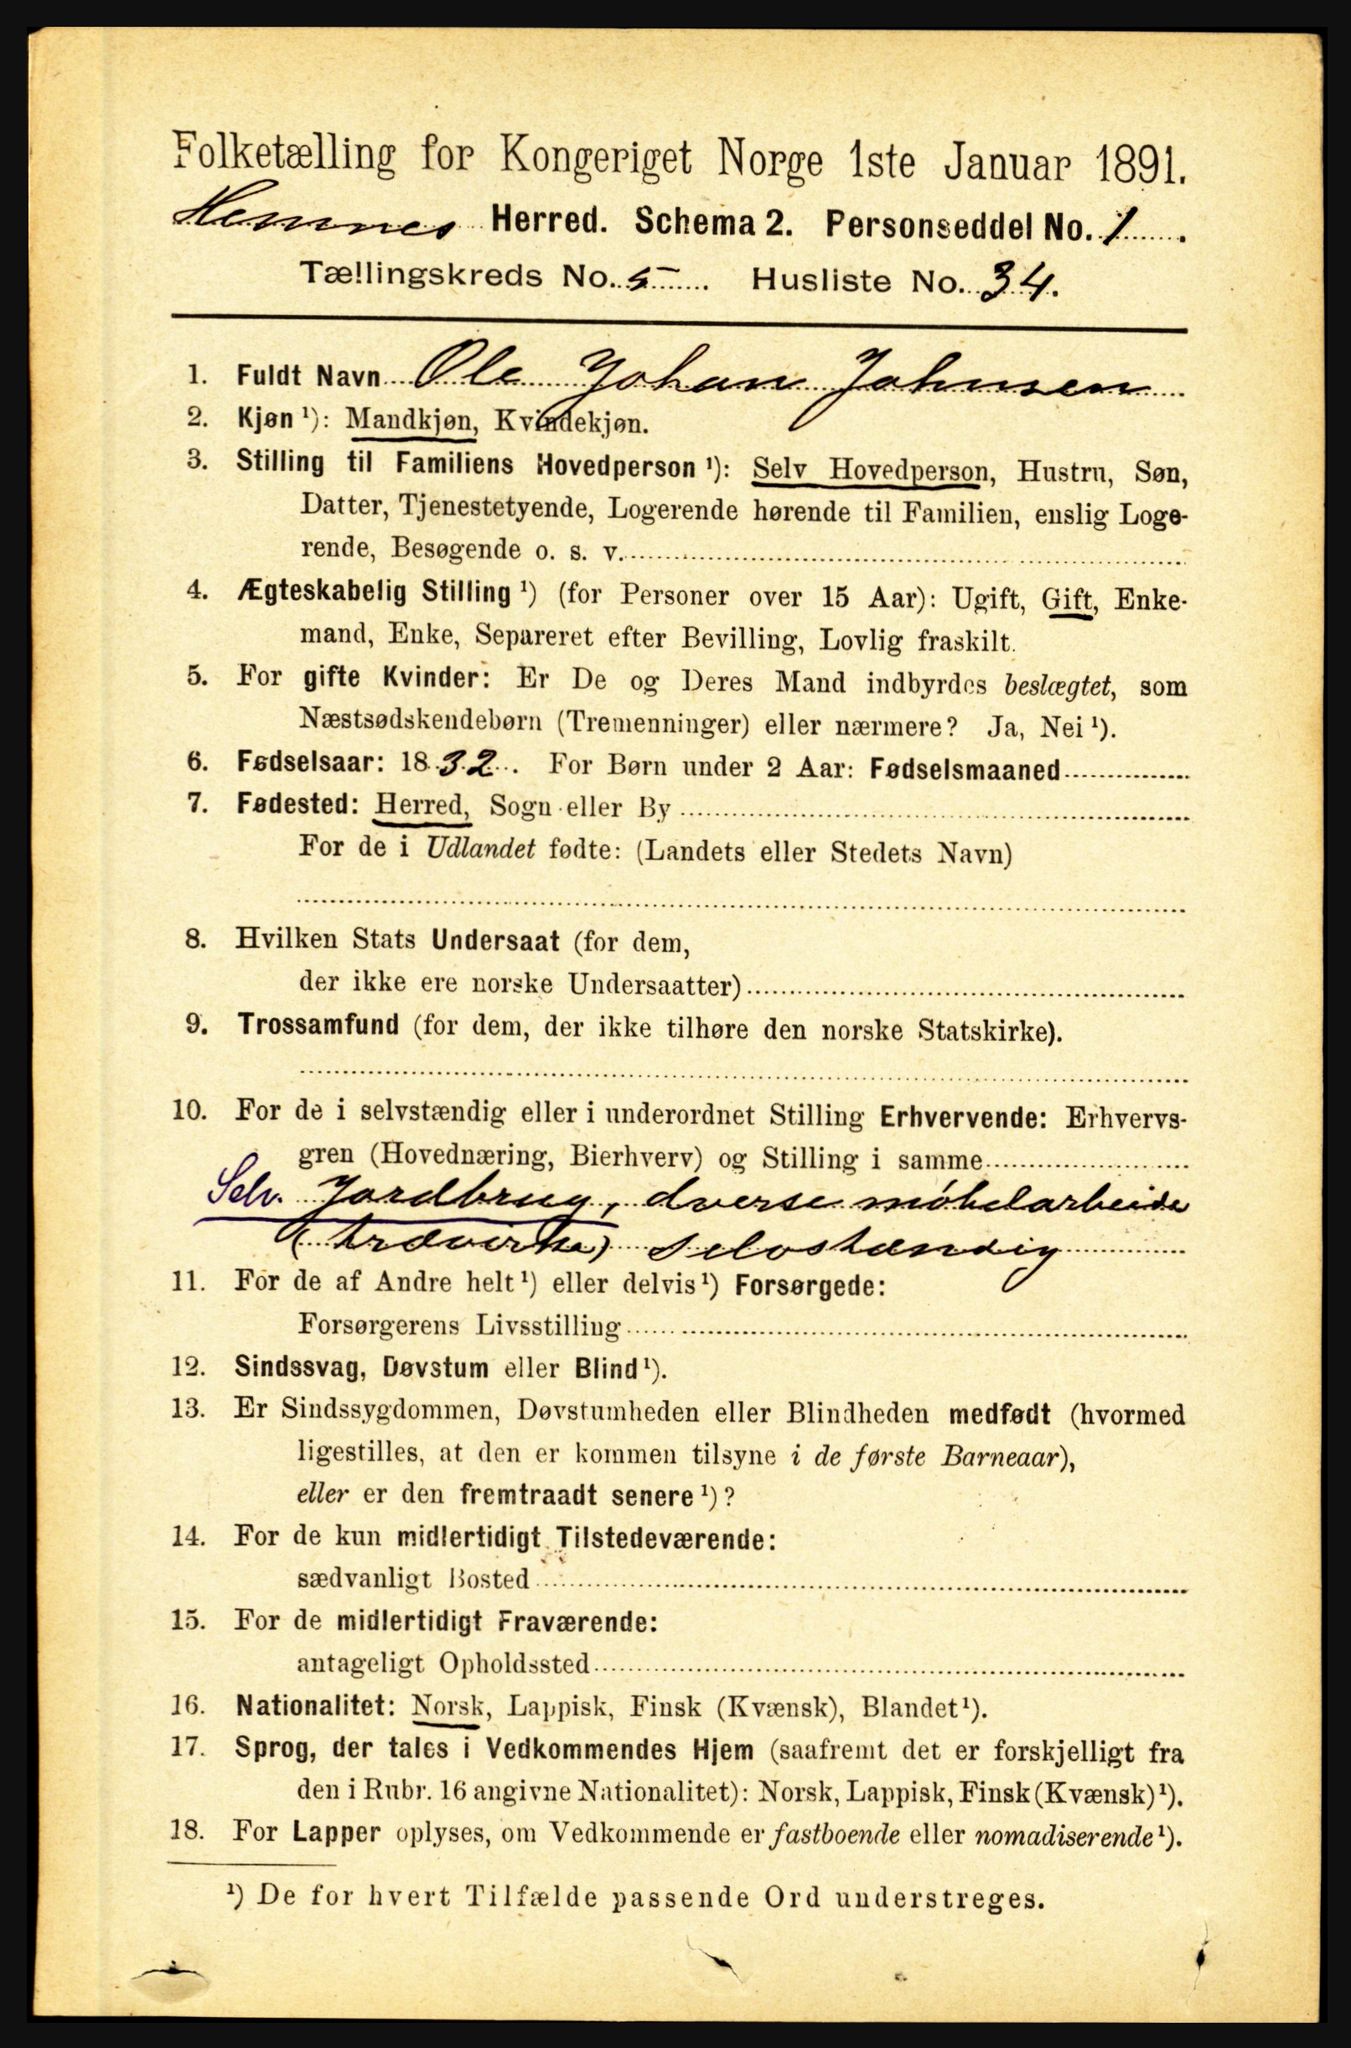 Folketælling for Kongeriget Norge 1ste Januar 1891.
Hemnes Herred. Schema 2. Personseddel No. 1.
Tællingskreds No. 5. Husliste No. 34.
1. Fuldt Navn Ole Johan Johnsen
2. Kjøn¹): Mandkjøn, Kvindekjøn.
3. Stilling til Familiens Hovedperson¹): Selv Hovedperson, Hustru, Søn,
Datter, Tjenestetyende, Logerende hørende til Familien, enslig Loge-
rende, Besøgende o. s. v.
4. Ægteskabelig Stilling¹) (for Personer over 15 Aar): Ugift, Gift, Enke-
mand, Enke, Separeret efter Bevilling, Lovlig fraskilt.
5. For gifte Kvinder: Er De og Deres Mand indbyrdes beslægtet, som
Næstsødskendebørn (Tremenninger) eller nærmere? Ja, Nei¹).
6. Fødselsaar: 1832. For Børn under 2 Aar: Fødselsmaaned
7. Fødested: Herred, Sogn eller By
For de i Udlandet fødte: (Landets eller Stedets Navn)
8. Hvilken Stats Undersaat (for dem,
der ikke ere norske Undersaatter)
9. Trossamfund (for dem, der ikke tilhøre den norske Statskirke).
10. For de i selvstændig eller i underordnet Stilling Erhvervende: Erhvervs-
gren (Hovednæring, Bierhverv) og Stilling i samme
Selv. Jordbrug, dverse møbelarbeide
(trævirke) selvstændig
11. For de af Andre helt¹) eller delvis¹) Forsørgede:
Forsørgerens Livsstilling
12. Sindssvag, Døvstum eller Blind¹).
13. Er Sindssygdommen, Døvstumheden eller Blindheden medfødt (hvormed
ligestilles, at den er kommen tilsyne i de første Barneaar),
eller er den fremtraadt senere¹)?
14. For de kun midlertidigt Tilstedeværende:
sædvanligt Bosted
15. For de midlertidigt Fraværende:
antageligt Opholdssted
16. Nationalitet: Norsk, Lappisk, Finsk (Kvænsk), Blandet¹).
17. Sprog, der tales i Vedkommendes Hjem (saafremt det er forskjelligt fra
den i Rubr. 16 angivne Nationalitet): Norsk, Lappisk, Finsk (Kvænsk)¹).
18. For Lapper oplyses, om Vedkommende er fastboende eller nomadiserende¹).
¹) De for hvert Tilfælde passende Ord understreges.